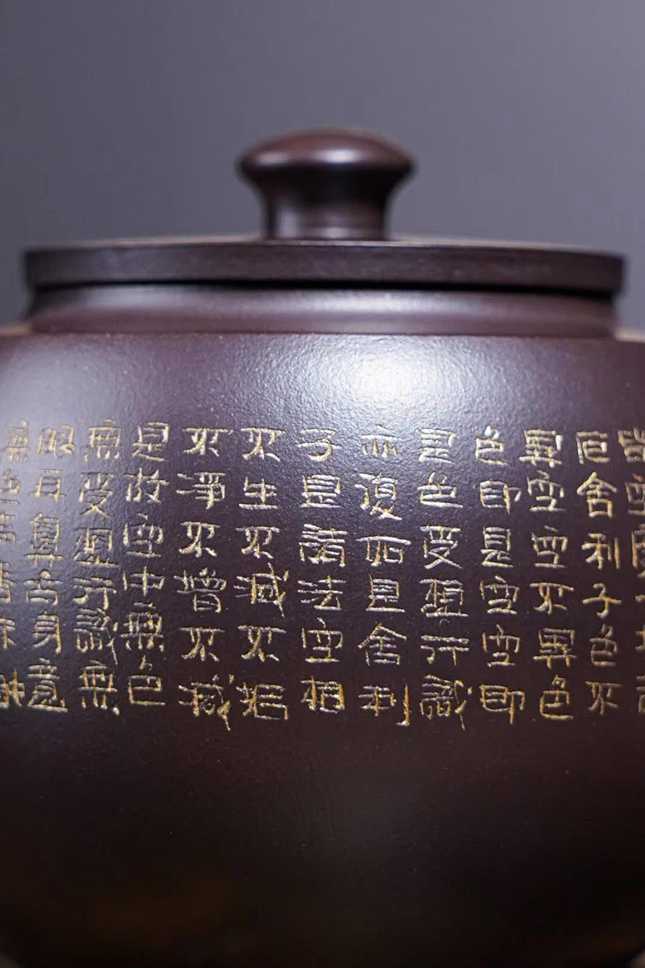 厄舍利子色不
異空空不異色
色即是空空即
是色受想行識
亦復如是舍利
子是諸法空相
不生不滅不垢
不淨不增不減
是故空中無色
無受想行識無
眼耳鼻舌身意